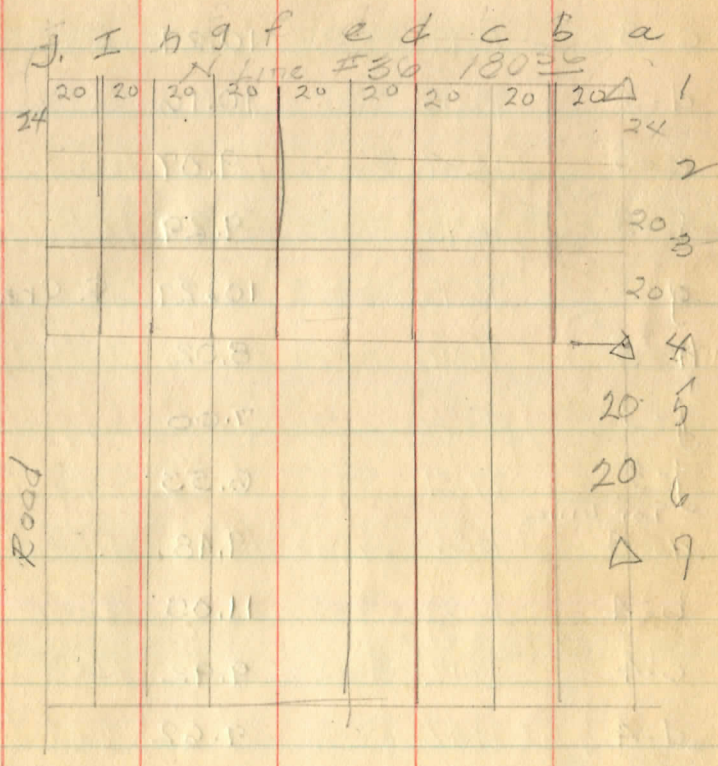 J. I h g f e d c b a
N Line #36 180 56
20 20 20 20 20 20 20 20 20 △ 1
24 24
2
20
3
20
△ 4
20 5
20 6
Road
△ 7